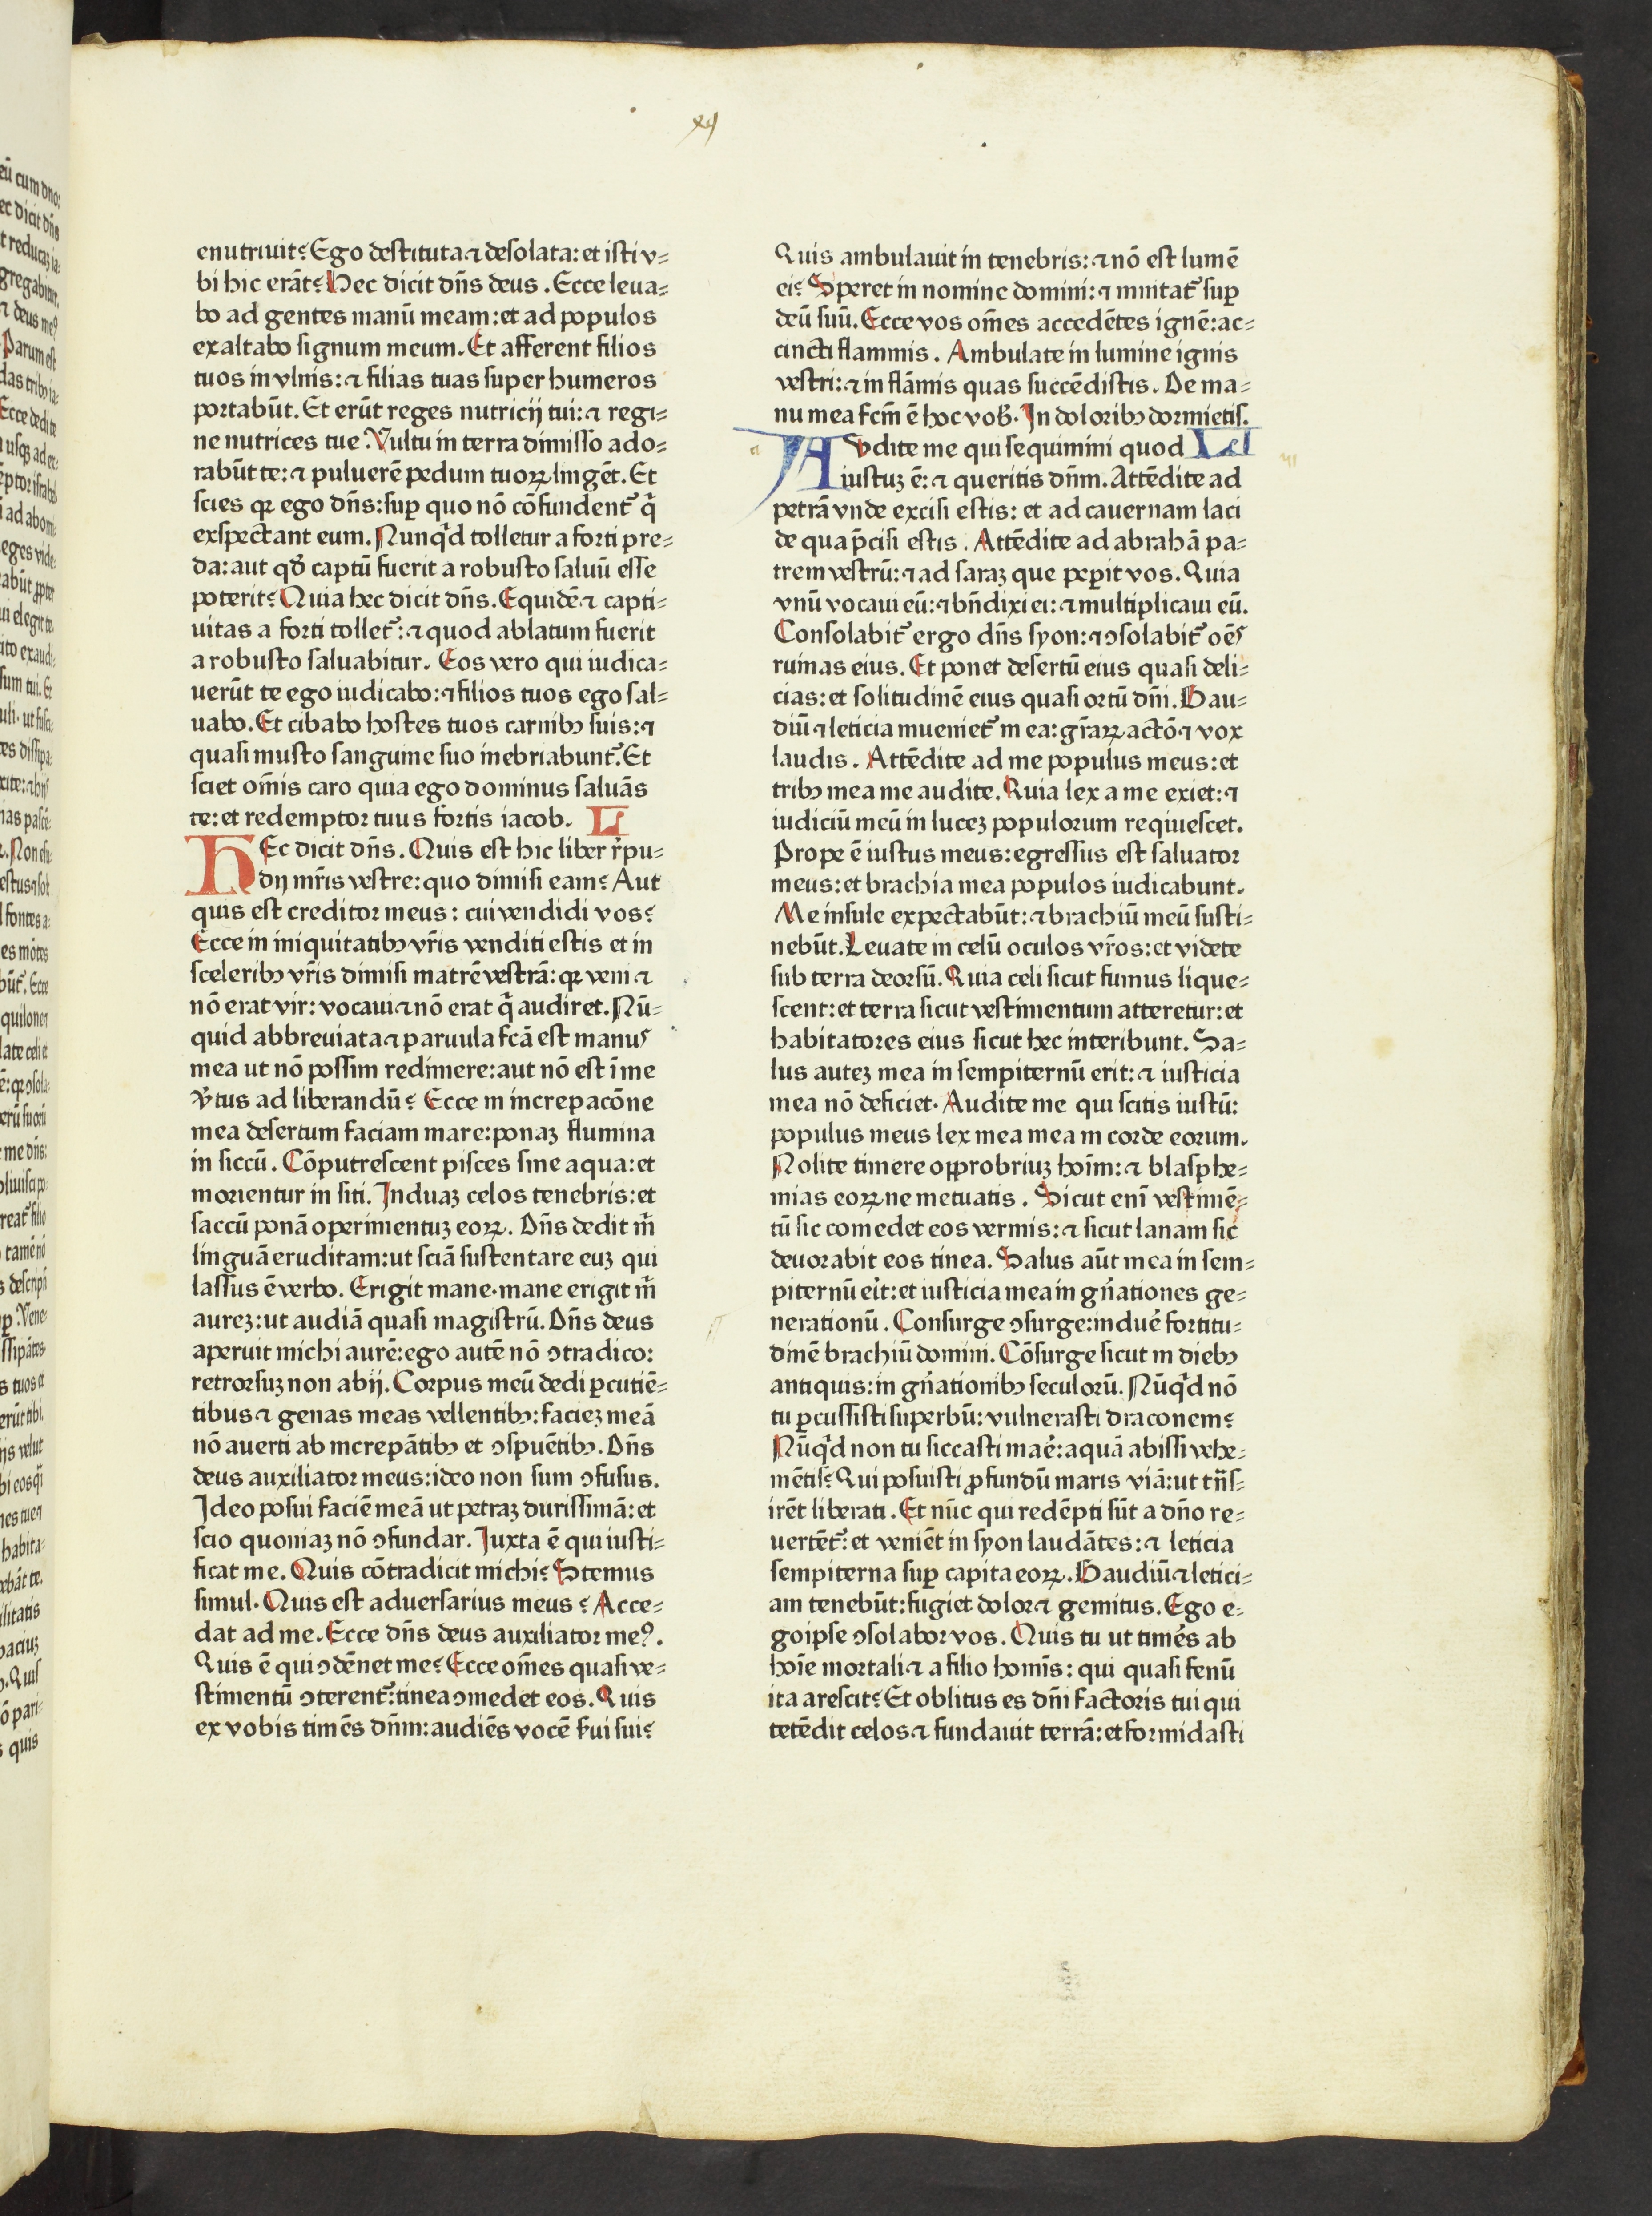 enutriuit? Ego destituta ⁊ desolata: et isti v-
bi hic erāt? Hec dicit dn̄s deus. Ecce leua-
bo ad gentes manū meam: et ad populos
exaltabo signum meum. Et afferent filios
tuos in vlnis: ⁊ filias tuas super humeros
portabūt. Et erūt reges nutricij tui: ⁊ regi-
ne nutrices tue. Vultu in terra dimisso ado-
rabūt te: ⁊ puluerē pedum tuoꝝ lingēt. Et
scies qꝛ ego dn̄s: suꝑ quo nō cōfundent᷑ q̄
exspectant eum. Nunq̄d tolletur a forti pre-
da: aut qď captū fuerit a robusto saluū esse
poterit? Quia hec dicit dn̄s. Equidē ⁊ capti-
uitas a forti tollet᷑: ⁊ quod ablatum fuerit
a robusto saluabitur. Eos vero qui iudica-
uerūt te ego iudicabo: ⁊ filios tuos ego sal-
uabo. Et cibabo hostes tuos carnibꝰ suis: ⁊
quasi musto sanguine suo inebriabunt᷑. Et
sciet om̄is caro quia ego dominus saluās
te: et redemptor tuus fortis iacob. L
HEc dicit dn̄s. Quis est hic liber r̄pu-
dij mr̄is vestre: quo dimisi eam? Aut
quis est creditor meus: cui vendidi vos?
Ecce in iniquitatibꝰ vr̄is venditi estis et in
sceleribꝰ vr̄is dimisi matrē vestrā: qꝛ veni ⁊
nō erat vir: vocaui ⁊ nō erat q̄ audiret. Nū-
quid abbreuiata ⁊ paruula fcā est manus
mea ut nō possim redimere: aut nō est ī me
v̓tus ad liberandū? Ecce in increpacōne
mea desertum faciam mare: ponaꝫ flumina
in siccū. Cōputrescent pisces sine aqua: et
morientur in siti. Induaꝫ celos tenebris: et
saccū ponā operimentuꝫ eoꝝ. Dn̄s dedit m̄
linguā eruditam: ut sciā sustentare euꝫ qui
lassus ē verbo. Erigit mane. mane erigit m̄
aureꝫ: ut audiā quasi magistrū. Dn̄s deus
aperuit michi aurē: ego autē nō ↄtradico:
retrorsuꝫ non abij. Corpus meū dedi ꝑcutiē-
tibus ⁊ genas meas vellentibꝰ: facieꝫ meā
nō auerti ab increpātibꝰ et ↄspuētibꝰ. Dn̄s
deus auxiliator meus: ideo non sum ↄfusus.
Ideo posui faciē meā ut petraꝫ durissimā: et
scio quoniaꝫ nō ↄfundar. Iuxta ē qui iusti-
ficat me. Quis cōtradicit michi? Stemus
simul. Quis est aduersarius meus? Acce-
dat ad me. Ecce dn̄s deus auxiliator meꝰ.
Quis ē qui ↄdēnet me? Ecce om̄es quasi ve-
stimentū ↄterent᷑: tinea ↄmedet eos. Quis
ex vobis timēs dn̄m: audiēs vocē ẜui sui?
Quis ambulauit in tenebris: ⁊ nō est lumē
ei? Speret in nomine domini: ⁊ innitat᷑ suꝑ
deū suū. Ecce vos om̄es accedētes ignē: ac-
cincti flammis. Ambulate in lumine ignis
vestri: ⁊ in flāmis quas succēdistis. De ma-
nu mea fcm̄ ē hoc vob̄. In doloribꝰ dormietis.
AVdite me qui sequimini quod LI
iustuꝫ ē: ⁊ queritis dn̄m. Attēdite ad
petrā vnde excisi estis: et ad cauernam laci
de qua p̄cisi estis. Attēdite ad abrahā pa-
trem vestrū: ⁊ ad saraꝫ que peꝑit vos. Quia
vnū vocaui eū: ⁊ bn̄dixi ei: ⁊ multiplicaui eū.
Consolabit᷑ ergo dn̄s syon: ⁊ ↄsolabit᷑ oēs
ruinas eius. Et ponet desertū eius quasi deli-
cias: et solitudinē eius quasi ortū dn̄i. Gau-
diū ⁊ leticia inueniet᷑ in ea: gr̄aꝝ actō ⁊ vox
laudis. Attēdite ad me populus meus: et
tribꝰ mea me audite. Quia lex a me exiet: ⁊
iudiciū meū in luceꝫ populorum requiescet.
Prope ē iustus meus: egressus est saluator
meus: et brachia mea populos iudicabunt.
Me insule expectabūt: ⁊ brachiū meū susti-
nebūt. Leuate in celū oculos vr̄os: et videte
sub terra deorsū. Quia celi sicut fumus lique-
scent: et terra sicut vestimentum atteretur: et
habitatores eius sicut hec interibunt. Sa-
lus auteꝫ mea in sempiternū erit: ⁊ iusticia
mea nō deficiet. Audite me qui scitis iustū:
populus meus lex mea mea in corde eorum.
Nolite timere oꝓbriuꝫ hoīm: ⁊ blasphe-
mias eoꝝ ne metuatis. Sicut enī vestimē-
tū sic comedet eos vermis: ⁊ sicut lanam sic
deuorabit eos tinea. Salus aūt mea in sem-
piternū eit: et iusticia mea in gn̄ationes ge-
nerationū. Consurge ↄsurge: induē fortitu-
dinē brachiū domini. Cōsurge sicut in diebꝰ
antiquis: in gn̄ationibꝰ seculorū. Nūq̄d nō
tu ꝑcussisti superbū: vulnerasti draconem?
Nūq̄d non tu siccasti maē: aquā abissi vehe-
mētis? Qui posuisti ꝓfundū maris viā: ut tn̄s-
irēt liberati. Et nūc qui redēpti sūt a dn̄o re-
uertēt᷑: et veniēt in syon laudātes: ⁊ leticia
sempiterna suꝑ capita eoꝝ. Gaudiū ⁊ letici-
am tenebūt: fugiet dolor ⁊ gemitus. Ego e-
go ipse ↄsolabor vos. Quis tu ut timēs ab
hoīe mortali ⁊ a filio homīs: qui quasi fenū
ita arescit? Et oblitus es dn̄i factoris tui qui
tetēdit celos ⁊ fundauit terrā: et formidasti